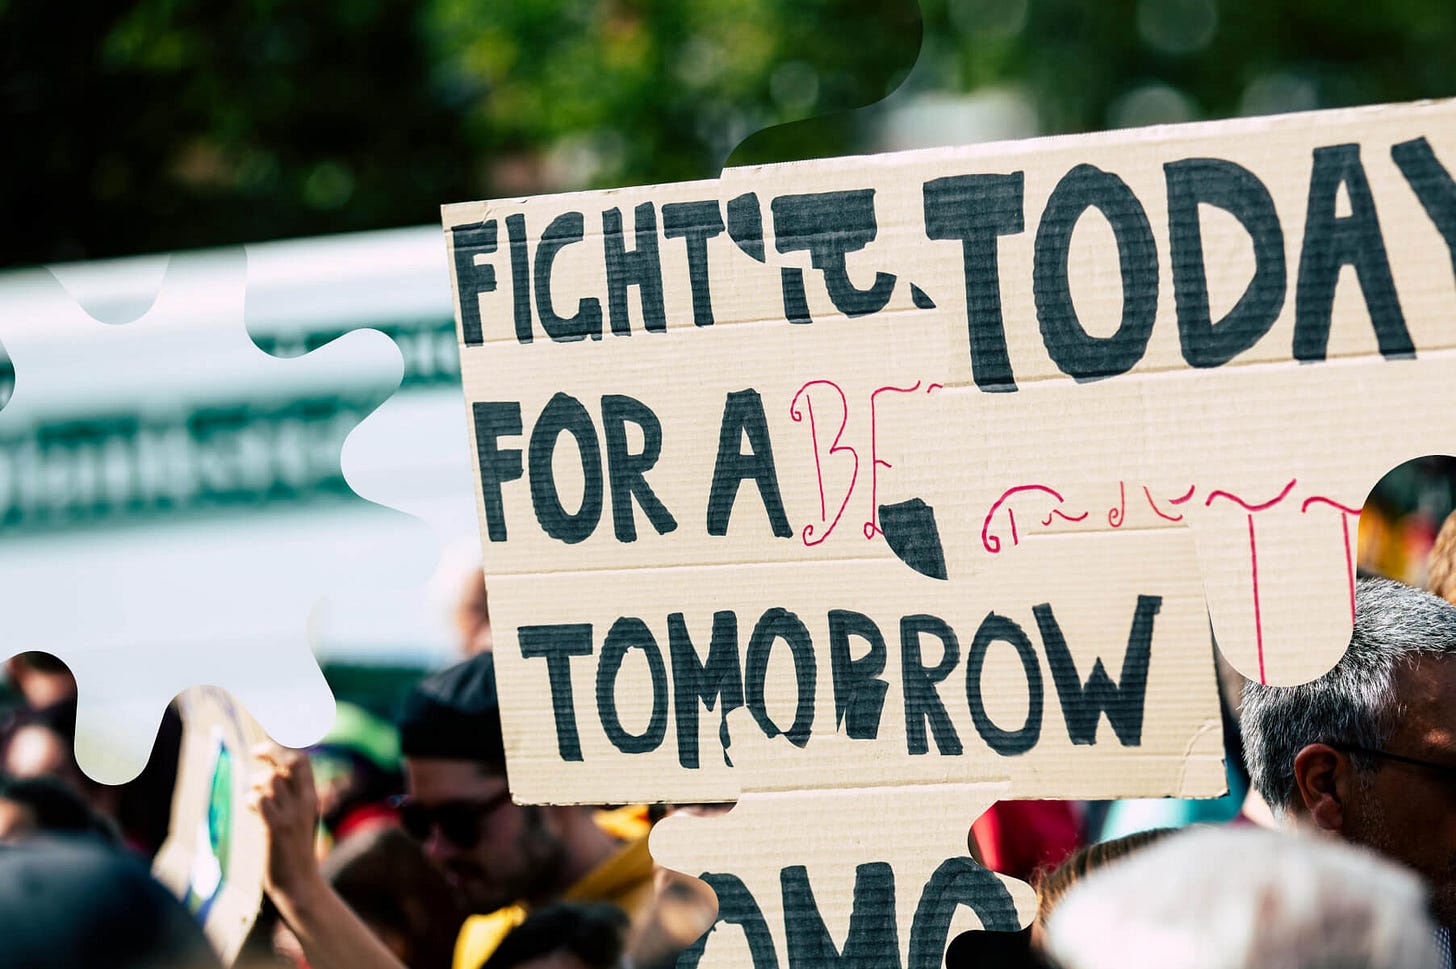 FIGHT TODAY
FOR A BE
TOMORROW
OMO